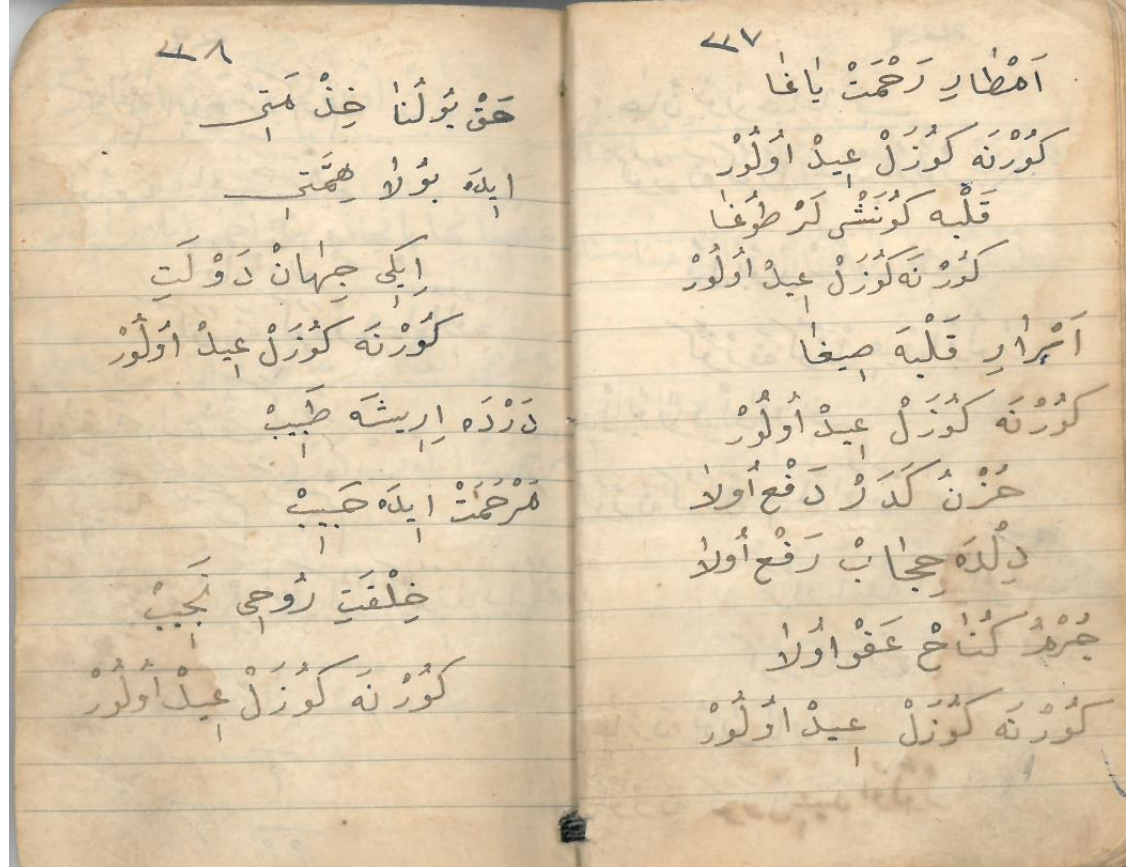 ٣٣٧
اَمْطَارِ رَحْمَتْ يَاغَا
كُورْنَه كُوزَلْ عِيدْ اُولُورْ
قَلْبِه كُونَشْ لَرْ طُوغَا
كُورْنَه كُوزَلْ عِيدْ اُولُورْ
اَسْرَارِ قَلْبَه صِيغَا
كُورْنَه كُوزَلْ عِيدْ اُولُورْ
حُزْنُ كَدَرْ دَفْع اُولَا
دِلْدَه حِجَابْ رَفْع اُولَا
جُرْمُ كُنَاحْ عَفْو اُولَا
كُورْنَه كُوزَلْ عِيدْ اُولُورْ
٣٣٨
حَقْ يُولُنَا خِذْمَتِى
اِيدَه بُولَا هِمَّتِى
اِيكِى جِهَانْ دَوْلَتِ
كُورْنَه كُوزَلْ عِيدْ اُولُورْ
دَرْدَه اِرِيشَه طَبِيبْ
مَرْحَمَتْ اِيدَه حَبِيبْ
خِلْقَتِ رُوحِى نَجِيبْ
كُورْنَه كُوزَلْ عِيدْ اُولُورْ